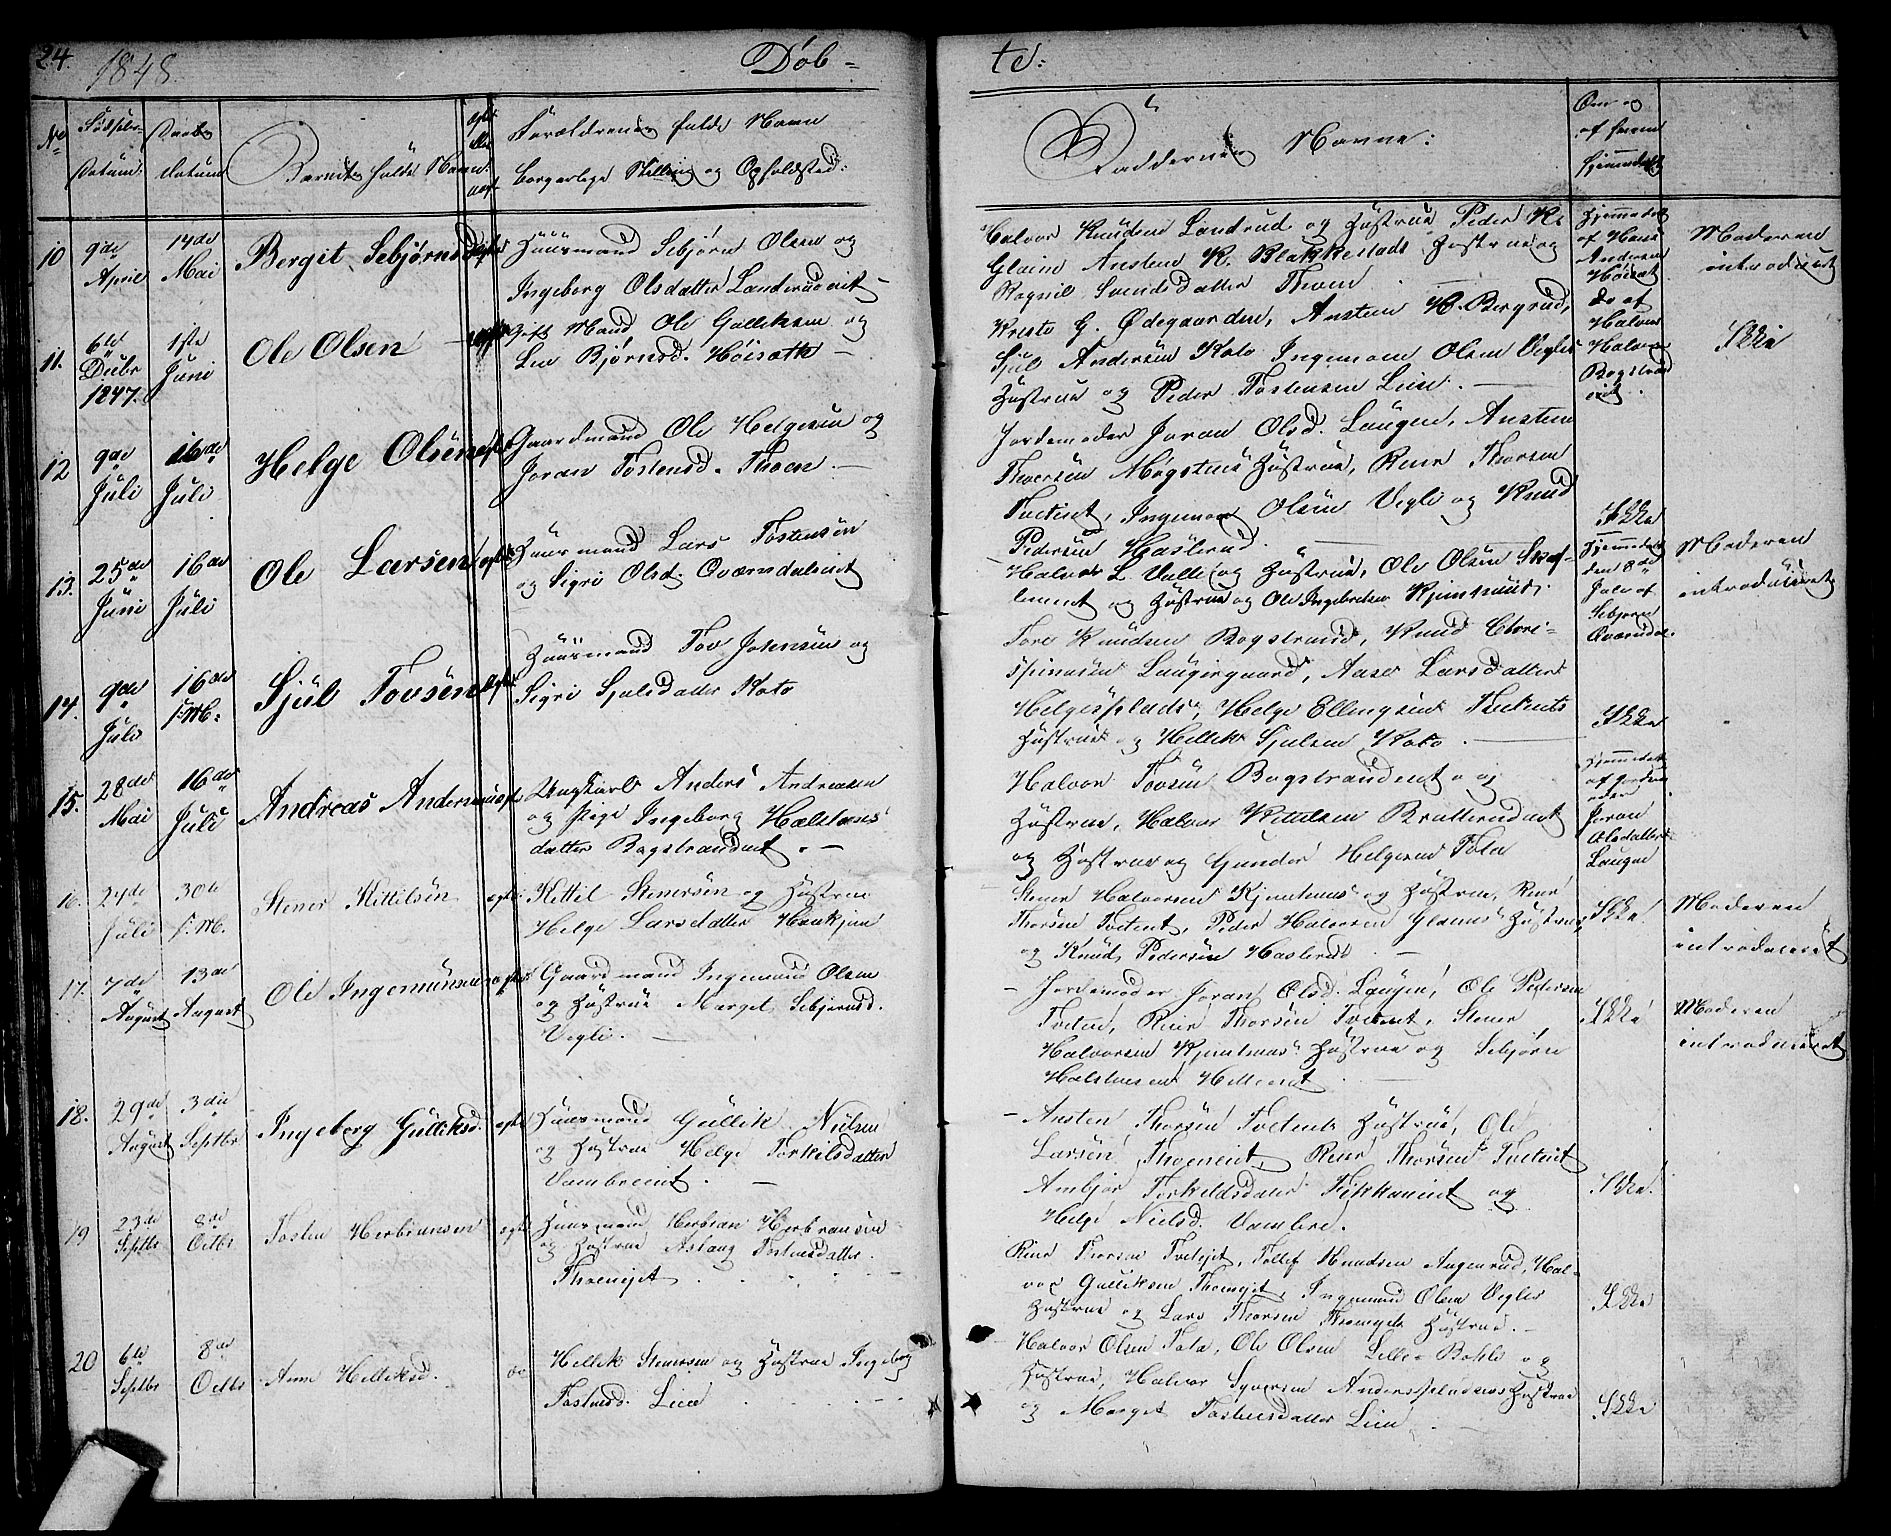 24. 1848. Døb- te:
No
Datum:
Datum
Barnets fulde Navn
Forældrenes fulde Navn
borgerlige Stilling og Opholdsted:
Faddernes Navne:
Om og
af hvem
hjemmedøbt
10 9de April 14de Mai Bergit Sebjørnsd.
Huusmand Sebjørn Olsen og
Ingeborg Olsdatter Landerudeiet
Halvor Knudsen Landrud og Hustrue, Peder K.
Glaim, Ansten K. Blakkestads Hustrue og
Ragnil Svendsdatter Thoen
Hjemmedøbt
af Hans
Andersen
Høisæt
Moderen
introduceret
11. 6te Decbr 1847. 1ste Juni Ole Olsen
gift Mand Ole Gulliksen og
Live Bjørnsd. Høisæth
Kresti G. Ødegaarden, Ansten H. Bergrud,
Sjul Andersen Kato, Ingemon Olsen Vegles
Hustrue og Peder Tostensen Lien.
do af
Halvor
Halvors
Bogstrand
eiet.
Ikke
12 9de Juli 16de Juli Helge Olsen
Gaardmand Ole Helgesen og
Joran Tostensd. Thoen.
Jordemoder Joran Olsd. Laugen, Ansten
Thorsen Mogstens Hustrue, Reier Thorsen
Tveteiet, Ingemon Olsen Vegli og Knud
Pedersen Haslerud.
Ikke
13. 25de Juni 16de Juli Ole Larsen
Huusmand Lars Tostensen
og Sigri Olsd. Qværndaleiet
Halvor L. Vallie og Hustrue, Ole Olsen
og Hustrue og Ole Ingebretsen
Hjemmedøbt
den 8de
Juli af
Sebjørn
Qværndal
Moderen
introduceret
14. 9de Juli 16de s: M: Sjul Tovsen
Huusmand Tov Johnsen og
Sigri Sjulsdatter Kato
Tore Knudsen Bogstrand, Knud Chri-
Laugergaard, Aase Larsdatter
Helgesplads, Helge Ellingsen
Hustrue og Hellik Sjulsen Kato.
Ikke
15. 28de Mai 16de Juli Andreas Andersen
Ungkarl Anders Andreasen
og Pige Ingeborg Halstens
datter Bogstrandeiet
Halvor Tovsen Bogstrandeiet og
Hustrue, Halvor Kittilsen Bratterudeiet
og Hustrue og Gunder Helgesen Tola
Hjemmedøbt
af Jorde
moder
Joran
Olsdatter
Laugen
16. 24de Juli 30te s: M. Stener Kittilsen
Kittil Stenersen og Hustrue
Helge Larsdatter
Stener Halvorsen og Hustrue, Reier
Thorsen Tveteiet, Peder Halvorsen Glaims Hustrue,
og Knud Pedersen Haslerud.
Ikke!
Moderen
introduceret
17. 7de August 13de August Ole Ingemunsen
Gaardmand Ingemund Olsen
og Hustrue Marget Sebjørnsd.
Vegli.
Jordemoder Joran Olsd. Laugen, Ole Pedersen
Tveten, Reier Thorsen Tveteiet, Stener
Halvorsen Hustrue og Sebjørn
Halstensen
Ikke!
Moderen
introduceret
18. 29de August 3die Septbr Ingeborg Gulliksd.
Huusmand Gullik Nielsen
og Hustrue Helge Torkilsdatter
Vambreeiet.
Ansten Thorsen Tvetens Hustrue, Ole
Larsen Thoeneiet, Reier Thorsen Tveteiet
Ambjør Torkeldsdatter og
Helge Nielsd. Vambre.
Ikke!
19 23de Septbr 8de Octbr Tosten Herbransen
Huusmand Herbran Herbransen
og Hustrue Aslaug Tostensdatter.
Thoeneiet
Reier Thorsen Tveteiet, Tollef Knudsen Hal-
vor Gulliksen Thoeneiet, Ingemund Olsen Vegles
Hustrue og Lars Thorsen Hustrue.
Ikke
20 6te Septbr 8de Octbr Anne Helliksd.
Hellik Stenersen og Hustrue Ingeborg
Tostensd. Lien
Halvor Olsen Tola, Ole Olsen Lille-Bakli og
Hustrue, Halvor Syversen Andersplads's Hustrue
og Marget Tostensdatter Lien
Ikke